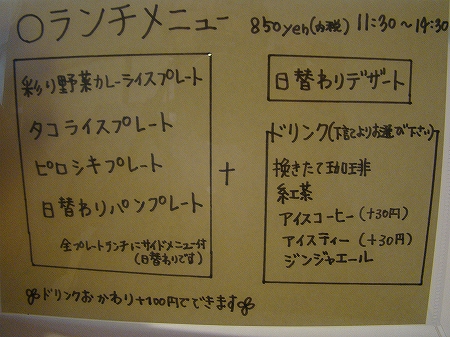 ○ランチメニュー 850yen(内税) 11:30〜14:30
彩り野菜カレーライスプレート
タコライスプレート
ピロシキプレート
日替わりパンプレート
全プレートランチにサイドメニュー付
(日替わりです)
+
日替わりデザート
ドリンク(下記よりお選び下さい)
挽きたて珈琲
紅茶
アイスコーヒー(+30円)
アイスティー(+30円)
ジンジャエール
ドリンクおかわり+100円でできます